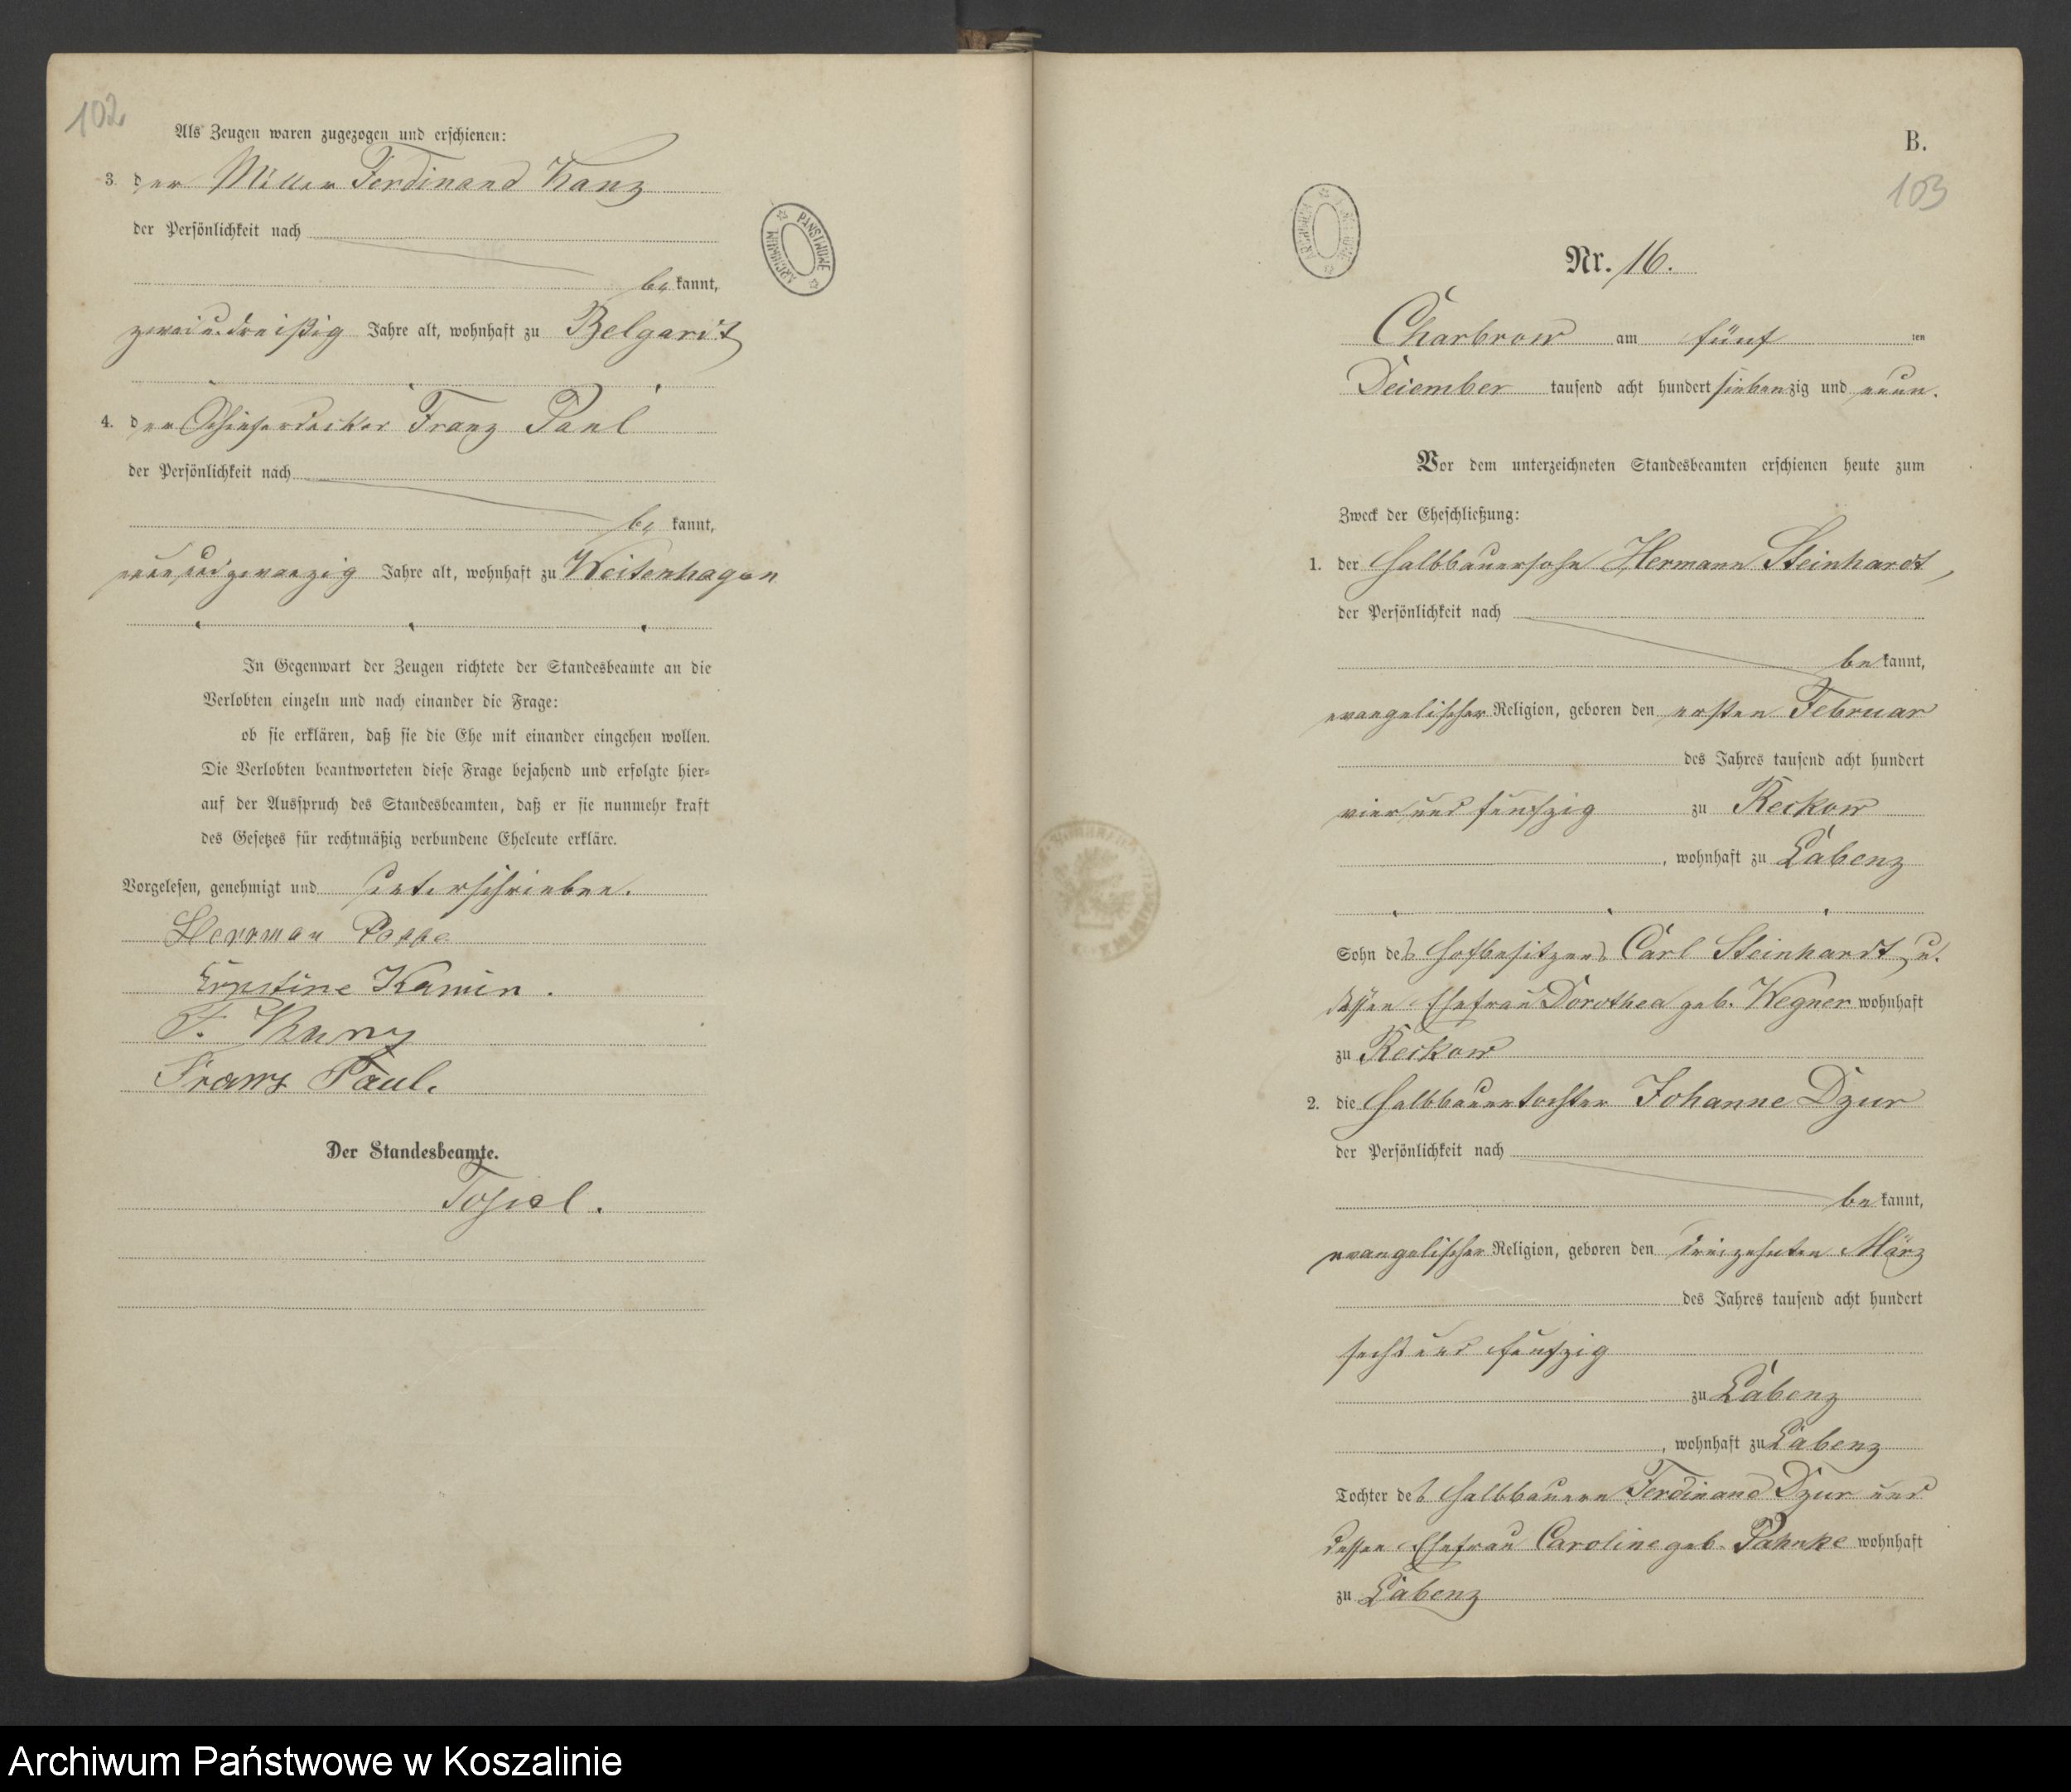 102
Als Zeugen waren zugezogen und erschienen:
3. der Müller Ferdinand Kanz
der Persönlichkeit nach
bekannt,
zweiu. dreißig Jahre alt, wohnhaft zu Belgard
4. der Schieferdecker Franz Paul
der Persönlichkeit nach
bekannt,
neunundzwanzig Jahre alt, wohnhaft zu Weitenhagen
In Gegenwart der Zeugen richtete der Standesbeamte an die
Verlobten einzeln und nach einander die Frage:
ob sie erklären, daß sie die Ehe mit einander eingehen wollen.
Die Verlobten beantworteten diese Frage bejahend und erfolgte hier-
auf der Ausspruch des Standesbeamten, daß er sie nunmehr kraft
des Gesetzes für rechtmäßig verbundene Eheleute erkläre.
Vorgelesen, genehmigt und unterschrieben.
Herrman
Ernstine Kamin.
F. Kanz
Franz Paul.
Der Standesbeamte.
PAŃSTWOWE ARCHIWUM
B.
103
Nr. 16.
Charbrow am fünf ten
December tausend acht hundert siebenzig und neun.
Vor dem unterzeichneten Standesbeamten erschienen heute zum
Zweck der Eheschließung:
1. der Halbbauersohn Hermann Steinhardt,
der Persönlichkeit nach
bekannt,
evangelischer Religion, geboren den ersten Februar
des Jahres tausend acht hundert
vier und fünfzig zu Reckow
, wohnhaft zu Labenz
Sohn des Hofbesitzers Carl Steinhardt u.
dessen Ehefrau Dorothea geb. Wegner wohnhaft
zu Reckow
2. die Halbbauertochter Johanne Dzur
der Persönlichkeit nach
bekannt,
evangelischer Religion, geboren den dreizehnten März
des Jahres tausend acht hundert
sechs und fünfzig
zu Labenz
, wohnhaft zu Labenz
Tochter des Halbbauern Ferdinand Dzur und
dessen Ehefrau Caroline geb. Pahnke wohnhaft
zu Labenz
Archiwum Państwowe w Koszalinie